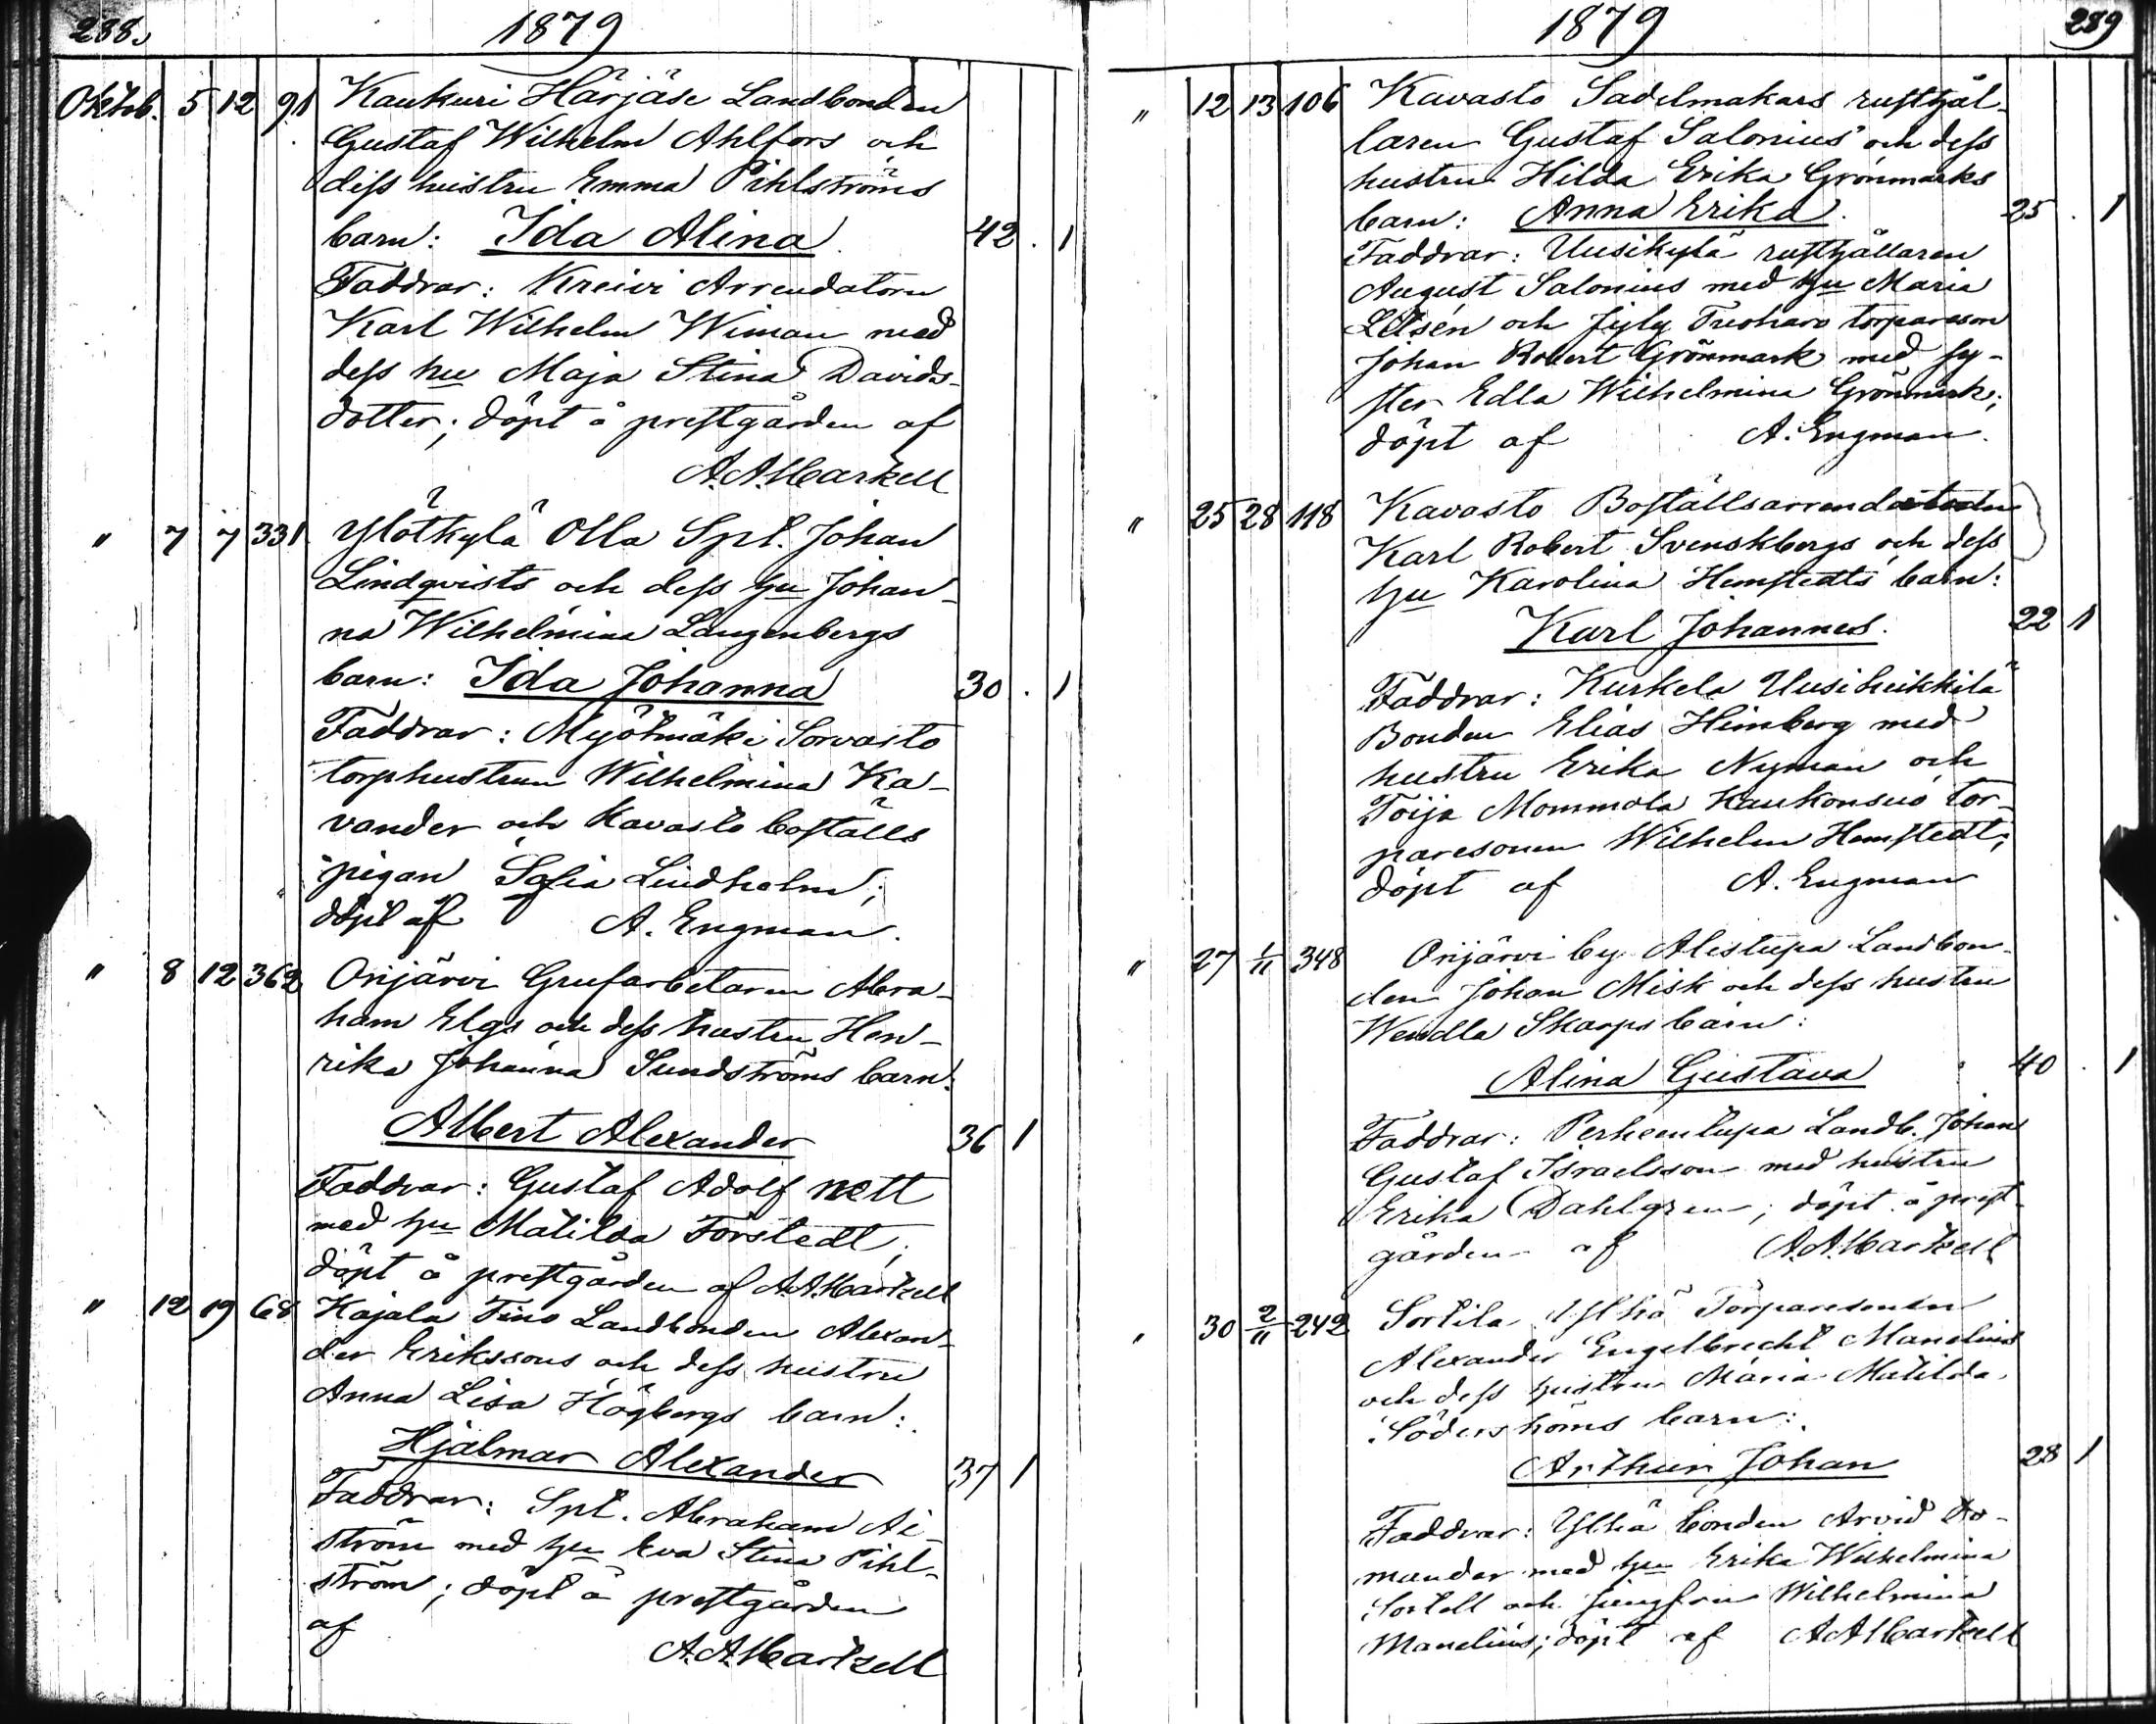 288.
1879
Oktob. 5 12 91 Kaukuri Härjäse Landbonden
Gustaf Wilhelm Ahlfors och
dess hustru Emma Pihlströms
barn: Ida Alina. 42. 1
Faddrar: Kreivi Arrendatorn
Karl Wilhelm Wiman med
dess hu Maja Stina Davids-
dotter; döpt å prestgården af
A. A. Markell
" 7 7 331 Ylötkylä Olla Spl. Johan
Lindqvists och dess hu Johan-
na Wilhelmina Langenbergs
barn: Ida Johanna 30. 1
Faddrar: Myötmäki Sorvasto
torphustrun Wilhelmina Ka-
vander och Kavasto boställs
pigan Sofia Lindholm;
döpt af A. Engman.
" 8 12 362 Orijärvi Grufarbetaren Abra-
ham Elgs och dess hustru Hen-
rika Johanna Sundströms barn:
Albert Alexander 36 1
Faddrar: Gustaf Adolf Nett
med hu Matilda Forstedt;
döpt å prestgården af A. A. Markell
" 12 19 68 Kajala Tino Landbonden Alexan-
der Erikssons och dess hustru
Anna Lisa Högbergs barn:
Hjalmar Alexander 37 1
Faddrar: Spl. Abraham Ai-
ström med hu Eva Stina Pihl-
ström; döpt å prestgården
af
A. A. Markell
1879
289
" 12 13 106 Kavasto Sadelmakars rusthål-
laren Gustaf Salonius och dess
hustru Hilda Erika Grönmarks
barn: Anna Erika. 25. 1
Faddrar: Uusikylä rusthållaren
August Salonius med hu Maria
och torpareson
Johan Robert Grönmark med sy-
ster Edla Wilhelmina Grönmark;
döpt af A. Engman.
" 25 28 118 Kavasto Boställsarrendatorn
Karl Robert Svenskbergs och dess
hu Karolina Hemstedts barn:
Karl Johannes. 22 1
Faddrar: Kurkela Uusiheikkilä
Bonden Elias Heimberg med
hustru Erika Nyman och
Toija Mommola Kaukonsuo tor-
paresonen Wilhelm Hemstedt;
döpt af A. Engman
" 27 1/11 348 Orijärvi by Alistupa Landbon-
den Johan Misk och dess hustru
Wendla Skarps barn:
Alina Gustava 40. 1
Faddrar: Perheentupa Landb. Johan
Gustaf Israelsson med hustru
Erika Dahlgren; döpt å prest-
gården af A. A. Markell
" 30 2/11 242 Sortila Ylhä Torparesonen
Alexander Engelbrecht Manelius
och dess hustru Maria Matilda
Söderströms barn:
Arthur Johan 28 1
Faddrar: Ylhä bonden Arvid
mander med hu Erika Wilhelmina
Sortell och jungfru Wilhelmina
Manelius; döpt af A. A. Markell